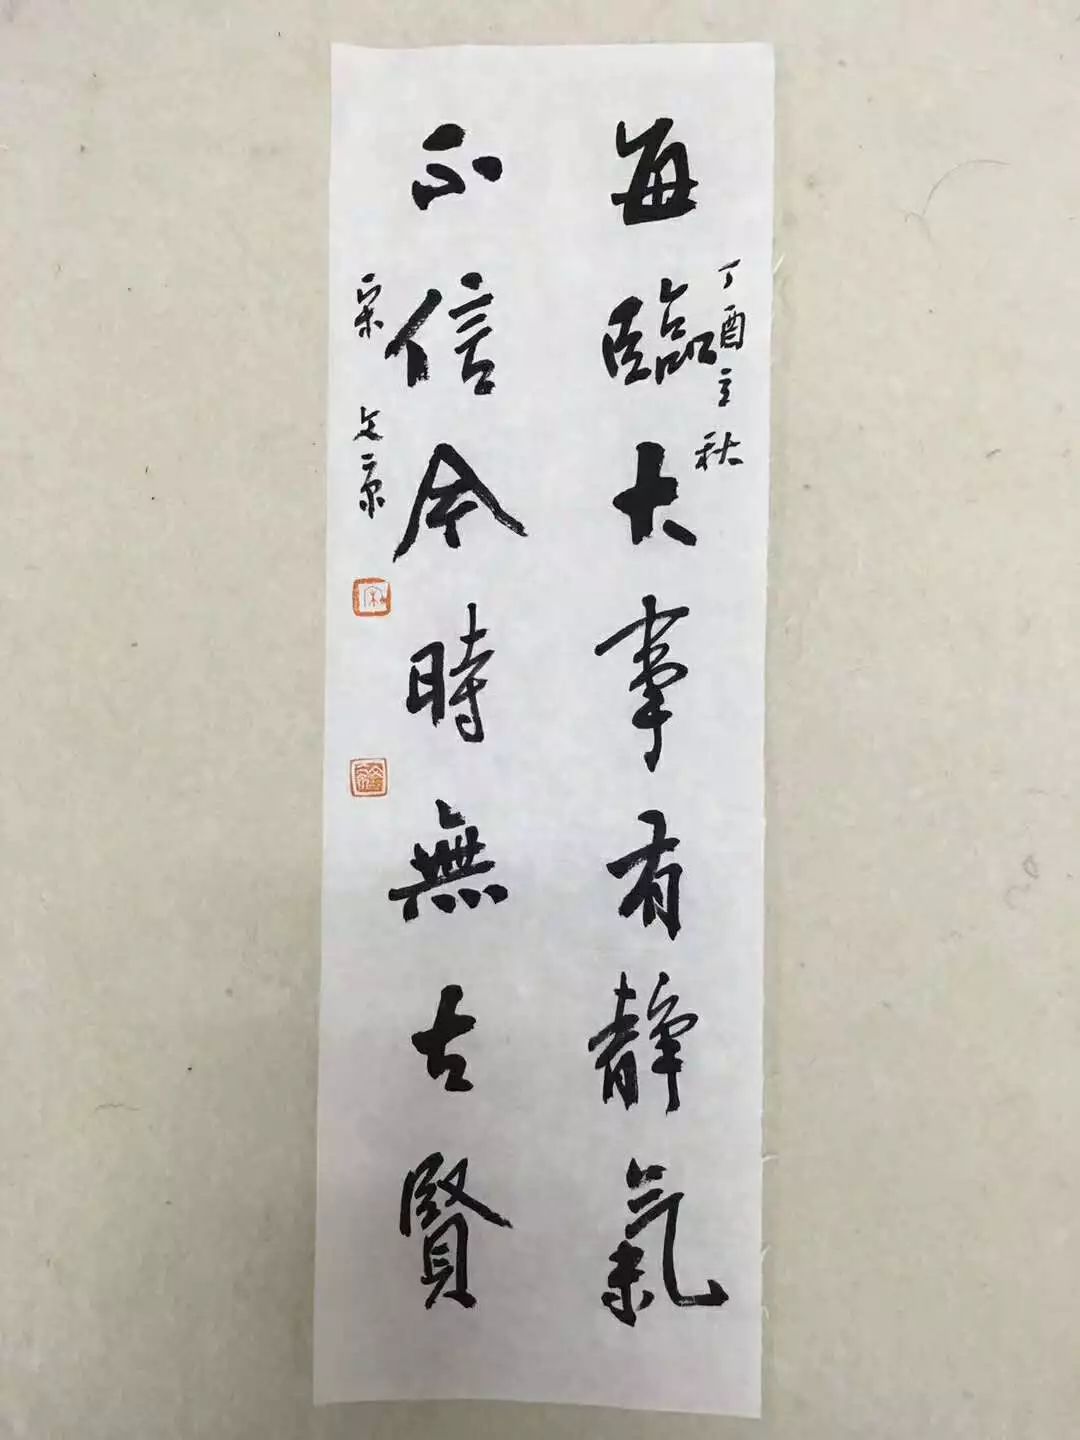 每臨大事有靜氣
丁酉立秋
不信今時無古賢
宋文京